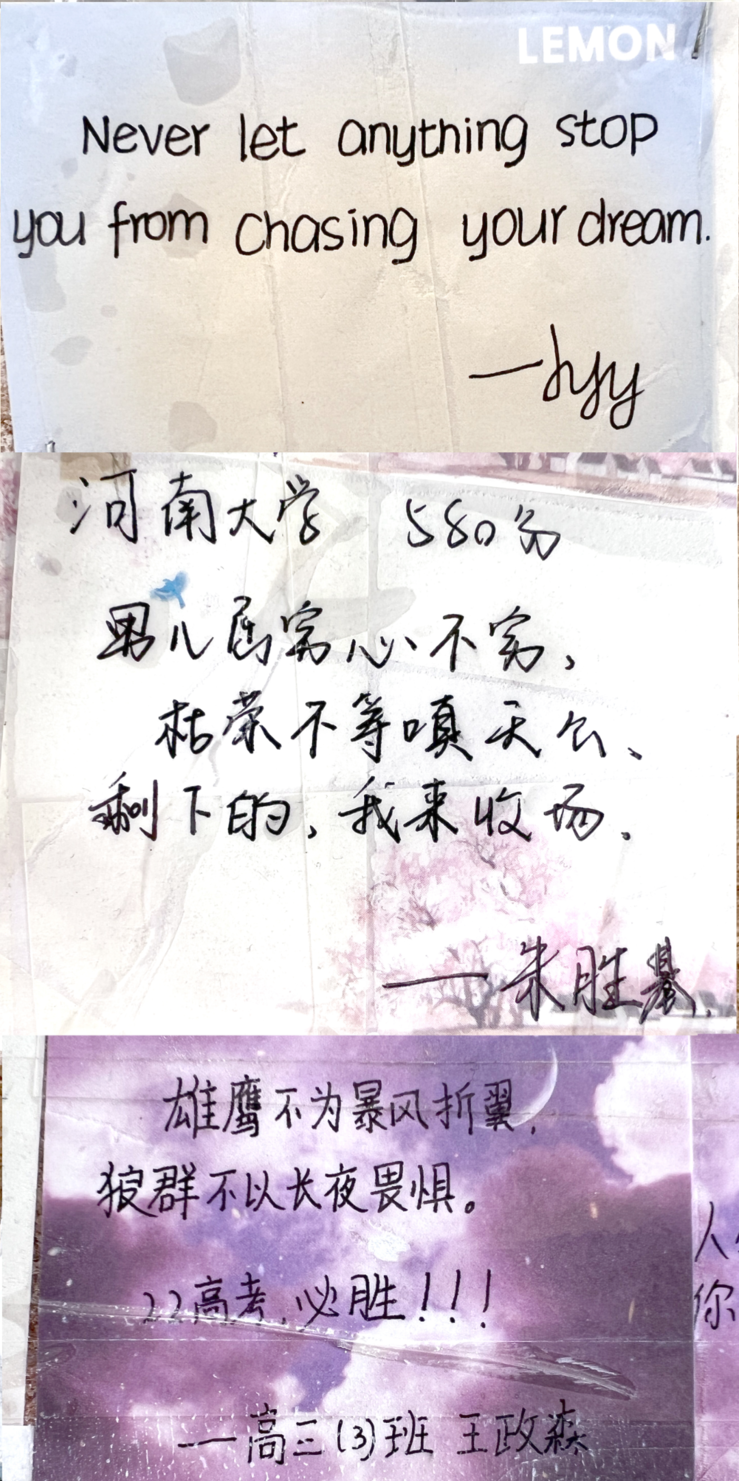 LEMON
Never let anything stop
you from chasing your dream.
—hyy
河南大学 580分
男儿居穷心不穷,
枯荣不等嗔天公、
剩下的,我来收场.
——朱胜
雄鹰不为暴风折翼,
狼群不以长夜畏惧。
22高考,必胜!!!
——高三(3)班 王政森
人
你